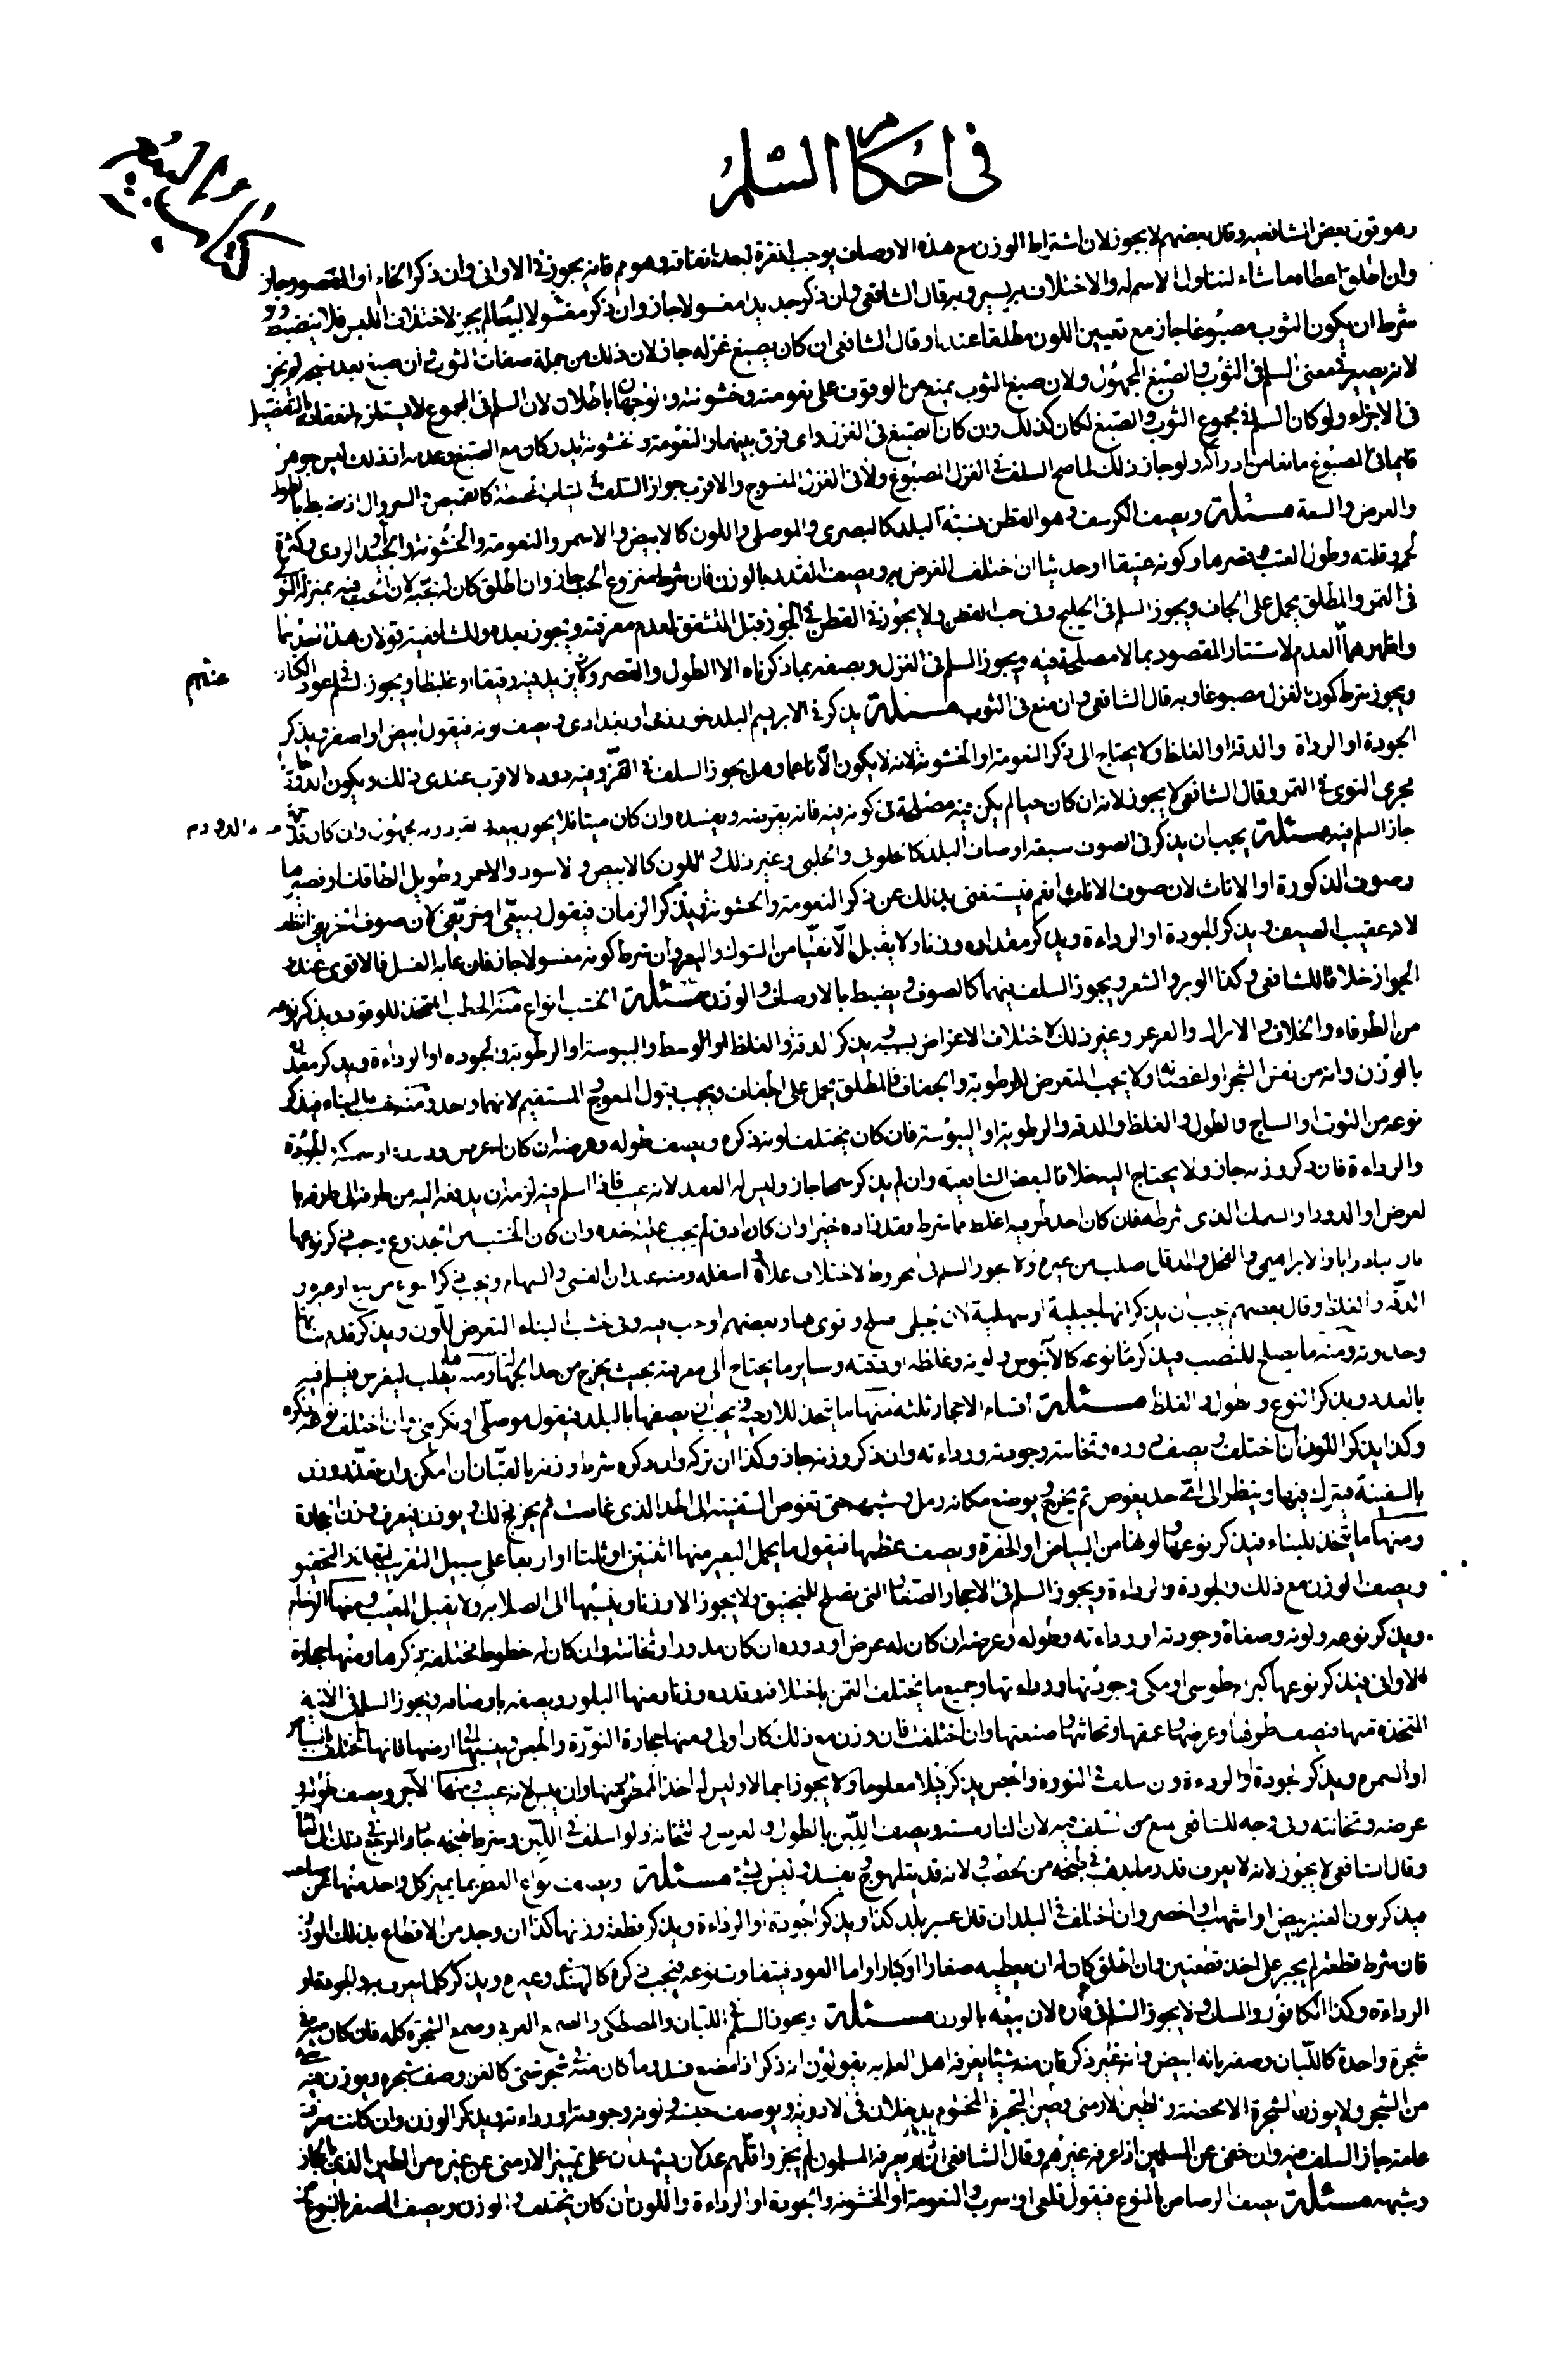 في احكام السلم
وهو قول بعض الشافعيه وقال بعضهم لا يجوز لان اشتراط الوزن مع هذه الاوصاف يوجب لبعد اتفاقه وهو مم فانه يجوز في الاواني وان ذكر الخام او المقصور جاز
وان اطلق اعطاه ما شاء لتناول الاسم له والاختلاف به يسير وبه قال الشافعي وان ذكر جديدا مغسولا جاز وان ذكر مغسولا لبيسا لم يجز لاختلاف اللبس فلا ينضبط ولو
شرط ان يكون الثوب مصبوغا جاز مع تعيين اللون مطلقا عندنا وقال الشافعي ان كان يصبغ غزله جاز لان ذلك من جملة صفات الثوب وان صبغ بعد نسجه لم يجز
لانه يصير في معنى السلم في الثوب والصبغ المجهول ولان صبغ الثوب يمنع من الوقوف على نعومته وخشونته والوجهان باطلان لان السلم في المجموع لا يستلزم التفصيل
في الاجزاء ولو كان السلم في مجموع الثوب والصبغ لكان كذلك وان كان الصبغ في الغزل واي فرق بينهما والنعومة والخشونة يدركان مع الصبغ وعدمه اذ ذلك ليس جوهرا
قائما في المصبوغ مانعا من ادراكه ولو جاز ذلك لما صح السلف في الغزل المصبوغ ولا في الغزل المنسوج والاقرب جواز السلف في الثياب المخيطة كالقميص والسروال اذا ضبط بالطول
والعرض والسعة مسئلة ويصف الكرسف وهو القطن بنسبته الى البلد كالبصري والموصلي واللون كالابيض والاسمر والنعومة والخشونة والجيد او الردى وكثرة
لحمه وقلته وطول العطب وقصرها وكونه عتيقا او حديثا ان اختلف الغرض به ويصف القدر بالوزن فان شرط منزوع الحب جاز وان اطلق كان له بحبه لان الحب فيه بمنزلة النوى
في التمر والمطلق يحمل على الجاف ويجوز السلم في الحليج وفي حب القطن ولا يجوز في القطن في الجوزق قبل التشقق لعدم معرفته ويجوز بعده وللشافعية قولان هذا احدهما
واظهرهما العدم لاستتار المقصود بما لا مصلحة فيه ويجوز السلم في الغزل ويصفه بما ذكرناه الا الطول والقصر ولكن يزيد فيه دقيقا او غليظا ويجوز السلم في الكتان
ويجوز شرط كون الغزل مصبوغا وبه قال الشافعي وان منع في الثوب مسئلة يذكر في الابريسم البلد خوارزمي او بغدادي ويصف لونه فيقول ابيض او اصفر ويذكر
الجودة او الرداة والدقة او الغلظ ولا يحتاج الى ذكر النعومة او الخشونة لانه لا يكون الا ناعما وهل يجوز السلف في القز وفيه دوده الاقرب عندي ذلك ويكون الدود جاريا
مجرى النوى في التمر وقال الشافعي لا يجوز لانه ان كان حيا لم يكن فيه مصلحة في كونه فيه فانه يقرضه ويفسده وان كان ميتا فلا يجوز بيعه وان كان قد خرج منه الدود
جاز السلم فيه مسئلة يجب ان يذكر في الصوف سبعة اوصاف البلد كالحلواني والحلبي وغير ذلك واللون كالابيض والاسود والاحمر وطويل الطاقات او قصيرها
وصوف الذكورة او الاناث لان صوف الاناث انعم فيستغنى بذلك عن ذكر النعومة والخشونة ويذكر الزمان فيقول ربيعي او خريفي لان صوف الخريفي انظف
لانه عقيب الصيف ويذكر الجودة او الرداءة ويذكر مقداره وزنا ولا يقبل الا نقيا من الشوك والبعر وان شرط كونه مغسولا جاز فان عابه الغسل فالاقوى عندي
الجواز خلافا للشافعي وكذا الوبر والشعر ويجوز السلف فيهما كالصوف ويضبط بالاوصاف والوزن مسئلة الخشب انواع منه الحطب المتخذ للوقود ويذكر نوعه
من الطرفاء والخلاف والاراك والعرعر وغير ذلك لاختلاف الاغراض بسببه ويذكر الدقة والغلظ او الوسط واليبوسة او الرطوبة والجودة او الرداءة ويذكر مقداره
بالوزن وانه من نفس الشجر او اغصانه ولا يجب التعرض للرطوبة والجفاف فالمطلق يحمل على الجفاف ويجب قبول المعوج والمستقيم لانهما واحد ومنه خشب البناء فيذكر
نوعه من التوت او الساج والطول والغلظ والدقة والرطوبة او اليبوسة فان كان يختلف لونه ذكره ويصف طوله وعرضه ان كان له عرض ودوره او سمكه والجودة
والرداءة فان ذكر وزنه جاز ولا يحتاج اليه خلافا لبعض الشافعية وان لم يذكر سمحا جاز وليس له العقد لانه عيب فاذا اسلم فيه لزمه ان يدفعه اليه من طرفه الى طرفه بالعرض
او الدور او السمك الذي شرطه فان كان احد طرفيه اغلظ مما شرط فقد زاده خيرا وان كان ادق لم يجب عليه اخذه وان كان الخشب من الجذوع وجب ذكر نوعها
الابراهيمي والفحل والدقل صلب من غيره ولا يجوز السلم في المخروط لاختلاف اعلاه واسفله ومنه عيدان القسي والسهام ويجب ذكر النوع من نبع او غيره و
الدقة والغلظ وقال بعضهم يجب ان يذكر انها جبلية او سهلية لان الجبلي اصلح واقوى لها وبعضهم اوجب فيه وفي خشب البناء التعرض للاون ويذكر قدم نباتها
وحدوثه ومنه ما يصلح للنصب فيذكر نوعه كالآبنوس ولونه وغلظه او دقته وساير ما يحتاج الى معرفته بحيث يخرج من حد الجهالة ومنه ما يطلب ليغرس فيسلم فيه
بالعدد ويذكر النوع والطول والغلظ مسئلة اقسام الاحجار ثلثة منها ما يتخذ للارحية ويجب ان يصفها بالبلد فيقول موصلي او تكريتي وان اختلف نوعه ذكره
وكذا يذكر اللون ان اختلف ويصف دوره وثخانته وجودته ورداءته وان ذكر وزنه جاز وكذا ان تركه وان ذكره شرط وزنه بالقبان ان امكن وان تعذر وزن
بالسفينة فيترك فيها وينظر الى اي حد يغوص ثم يخرج ويوضع مكانه رمل وشبهه حتى تغوص السفينة الى الحد الذي غاصت ثم يخرج ذلك ويوزن فيعرف وزن الحجارة
ومنها ما يتخذ للبناء فيذكر نوعها ولونها من البياض او الخضرة ويصف عظمها فيقول ما يحمل البعير منها اثنتين او ثلثا او اربعا على سبيل التقريب
ويصف الوزن مع ذلك والجودة والرداءة ويجوز السلم في الاحجار الصغار التي تصلح للمنجنيق ولا يجوز الا وزنا وينسبها الى الصلابة ولا يقبل المعيب ومنها الرخام
ويذكر نوعه ولونه وصفاؤه وجودته او رداءته وطوله وعرضه ان كان له عرض او دوره ان كان مدورا وثخانته وان كان له خطوط مختلفة ذكرها ومنها حجارة
الاواني فيذكر نوعها كبرام طوسي او مكي وجودتها ورداءتها وجميع ما يختلف الثمن باختلافه وقدره وزنا ومنها البلور ويصفه باوصافه ويجوز السلم في الآنية
المتخذة منها فيصف طولها وعرضها وعمقها وثخانتها وصنعتها وان اختلفت فان وزن مع ذلك كان اولى ومنها حجارة النورة والجص وينسبهما الى ارضها فانها تختلف بالبياض
او السمرة ويذكر الجودة والرداءة وان سلف في النورة والجص يذكر كيلا معلوما ولا يجوز احمالا وليس له اخذ الممطور منهما وان يبس لانه عيب ومنها الآجر ويصف طوله و
عرضه وثخانته وفي وجه للشافعي منع من السلف فيه لان النار مسته ويصف اللبن بالطول والعرض والثخانة ولو اسلف في اللبن وشرط طبخه جاز والمرجع في ذلك الى العادة
وقال الشافعي لا يجوز لانه لا يعرف قدر ما يذهب في طبخه من الحطب ولانه قد يتلهوج ويفسد وليس بشيء مسئلة ويصف انواع العطر بما يميز كل واحد منها عن صاحبه
فيذكر لون العنبر ابيض او اشهب او اخضر وان اختلف في البلدان قال عنبر بلد كذا ويذكر الجودة او الرداءة ويذكر قطعة وزنها كذا ان وجد من الاقطاع بذلك الوزن
فان شرط قطعة لم يجبر على اخذ قطعتين وان اطلق كان له ان يعطيه صغارا او كبارا واما العود فيتفاوت نوعه فيجب ذكره كالهندي وغيره ويذكر كلما يعرف به والجودة او
الرداءة وكذا الكافور والمسك ولا يجوز السلم في فأره لان بيعه بالوزن مسئلة ويجوز السلم في اللبان والمصطكى والصمغ العربي وصمغ الشجرة كله فان كان منه في
شجرة واحدة كاللبان وصفه بانه ابيض وانه غير ذكر فان منه شيئا يعرفه اهل العلم به يقولون انه ذكر اذا مضغ فسد وما كان منه في شجر شتى كالغرى وصف شجره ويوزن فيه شيء
من الشجر ولا يوزن الشجرة الا محضة والطين الارمني وطين البحرة المختوم يدخلان في الادوية ويوصف جنسه ولونه وجودته او رداءته ويذكر الوزن وان كانت معرفته
عامة جاز السلف فيه وان خفي عن المسلمين اذا عرفه غيرهم وقال الشافعي ان لم يعرفه المسلمون لم يجز واقلهم عدلان يشهدان على تمييز الارمني عن غيره من الطين الذي بالحجاز
وشبهه مسئلة يصف الرصاص بالنوع فيقول قلعي او اسرب والنعومة او الخشونة والجودة او الرداءة واللون ان كان يختلف والوزن ويصف الصفر بالنوع من